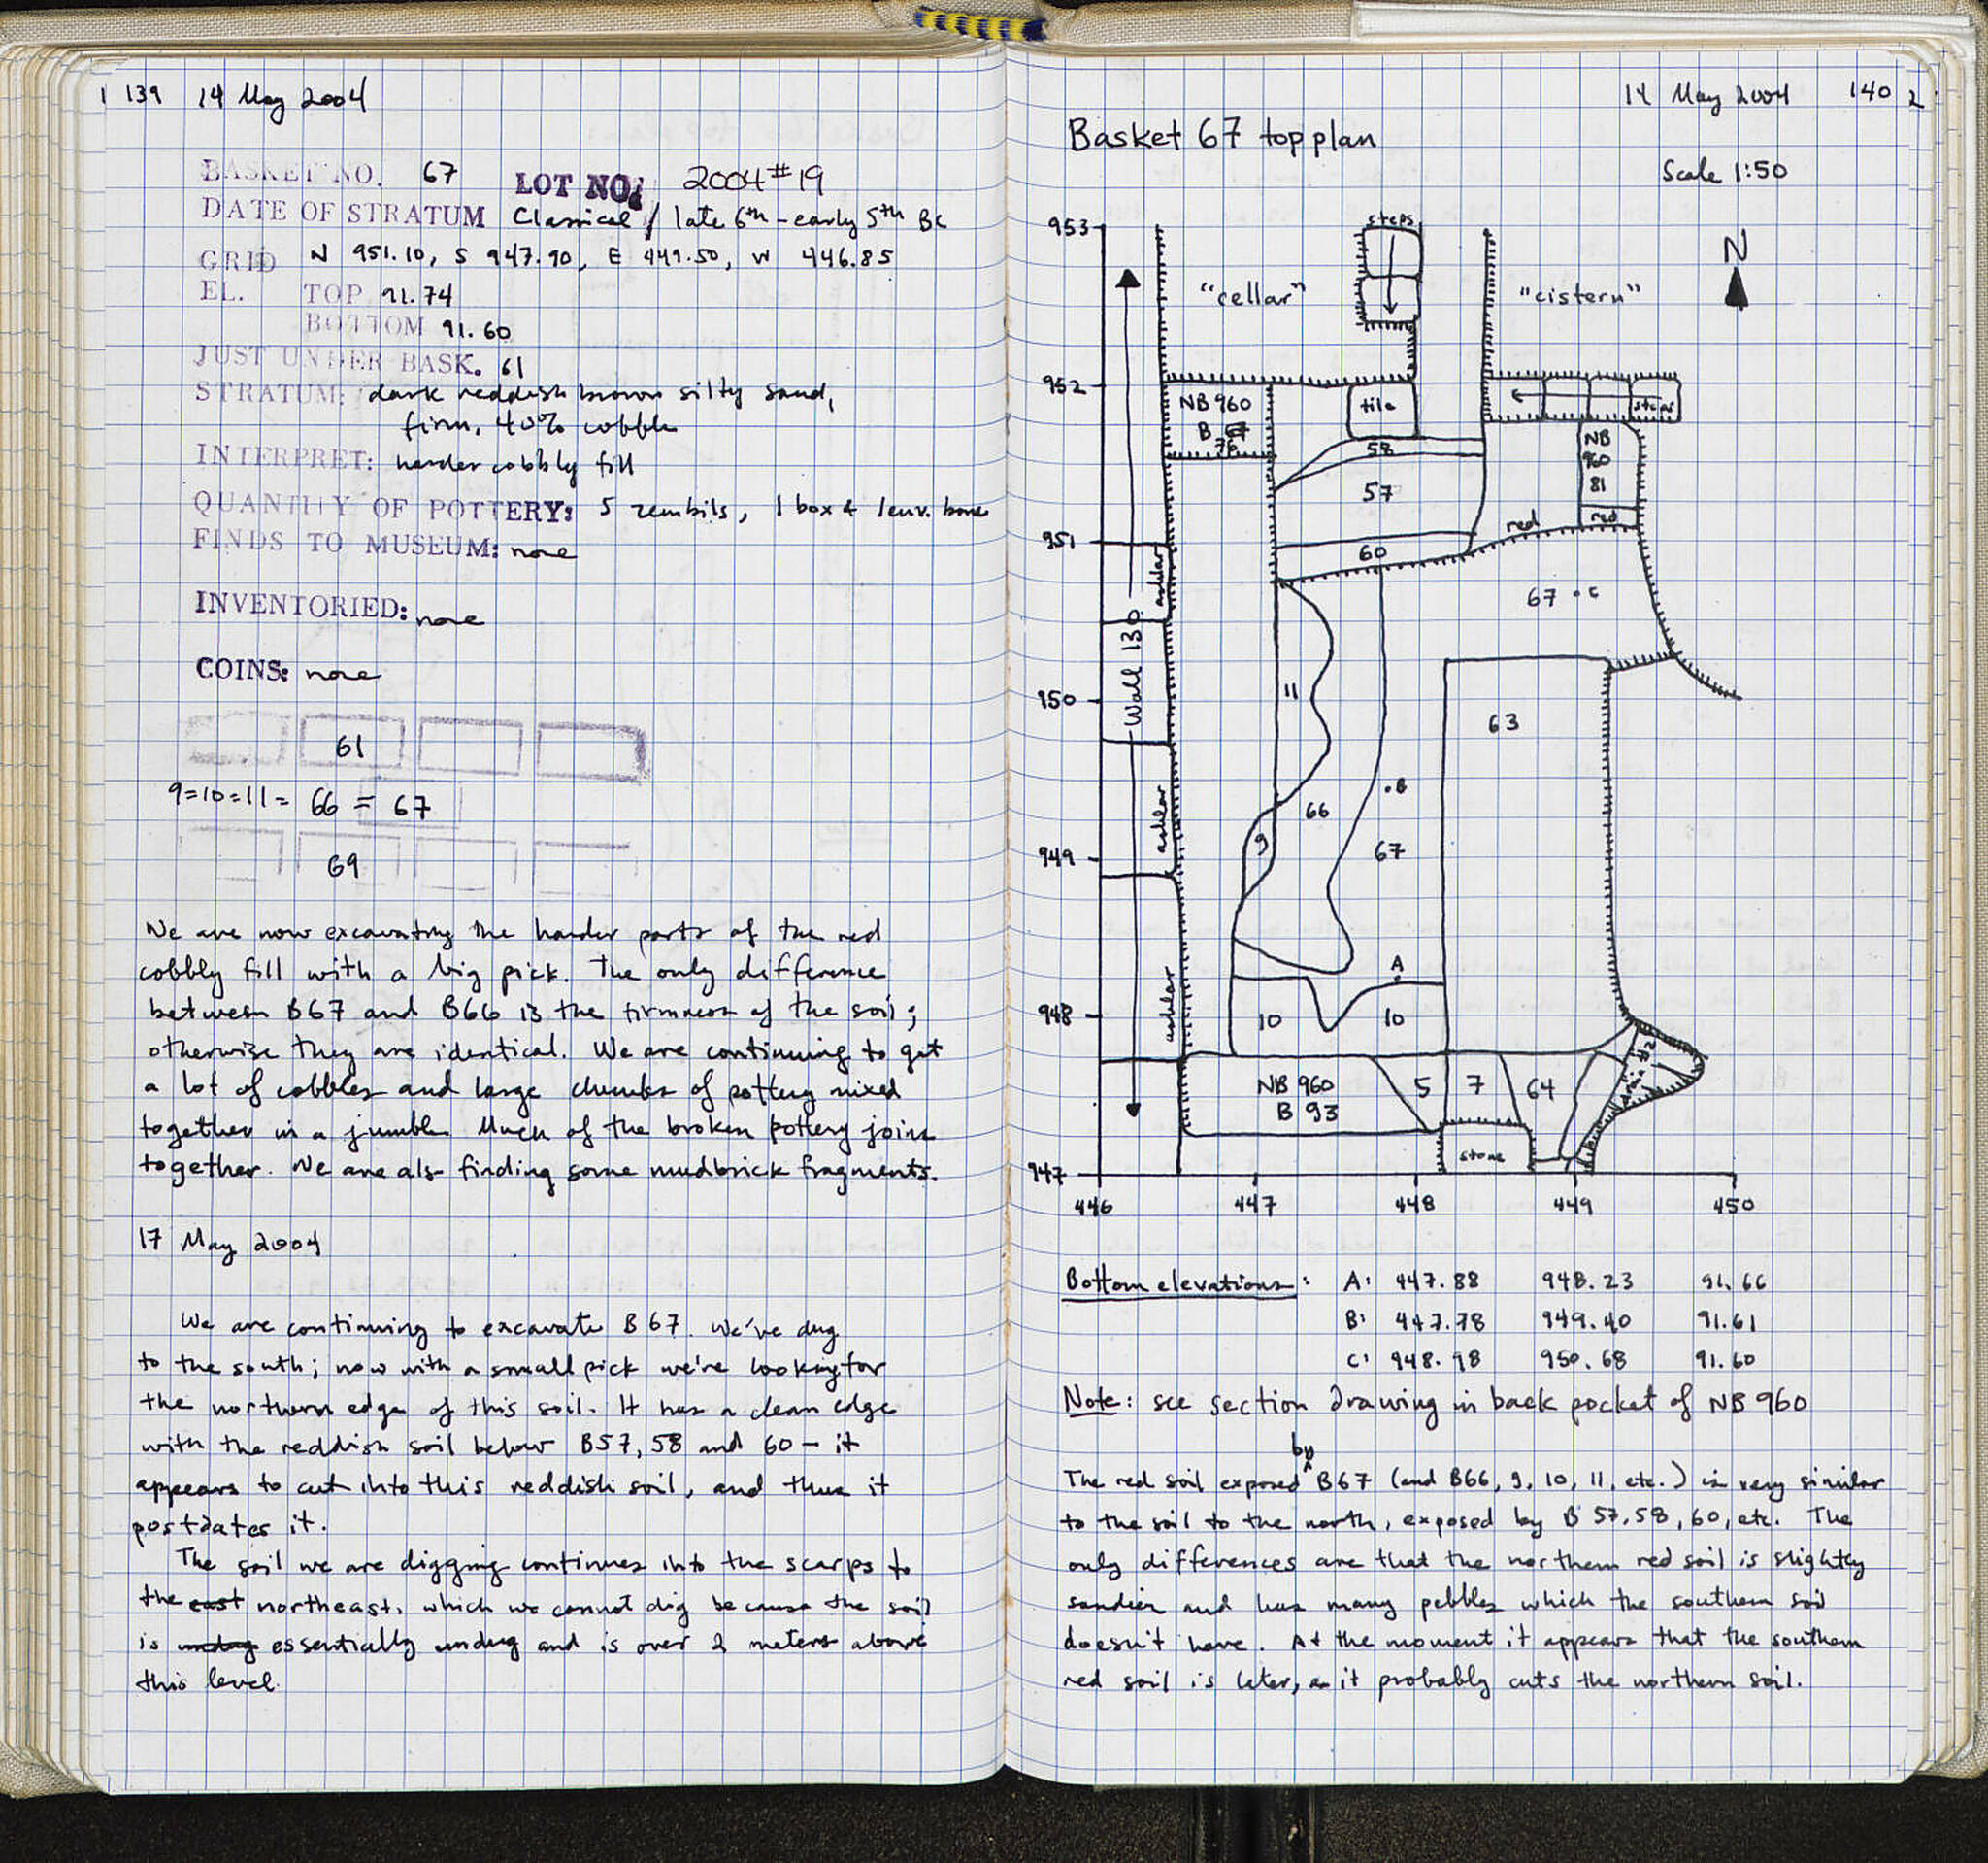 1 139 14 May 2004
BASKET NO. 67 LOT NO. 2004#19
DATE OF STRATUM Classical / late 6th - early 5th BC
GRID N 951.10, S 947.90, E 449.50, W 446.85
EL. TOP 91.74
BOTTOM 91.60
JUST UNDER BASK. 61
STRATUM: dark reddish brown silty sand,
firm, 40% cobble
INTERPRET: harder cobbly fill
QUANTITY OF POTTERY: 5 zembils, 1 box & 1 env. bone
FINDS TO MUSEUM: none
INVENTORIED: none
COINS: none
61
9=10=11= 66 = 67
69
We are now excavating the harder parts of the red
cobbly fill with a big pick. The only difference
between B67 and B66 is the firmness of the soil;
otherwise they are identical. We are continuing to get
a lot of cobbles and large chunks of pottery mixed
together in a jumble. Much of the broken pottery joins
together. We are also finding some mudbrick fragments.
17 May 2004
We are continuing to excavate B67. We've dug
to the south; now with a small pick we're looking for
the northern edge of this soil. It has a clean edge
with the reddish soil below B57, 58 and 60 - it
appears to cut into this reddish soil, and thus it
postdates it.
The soil we are digging continues into the scarps to
the east northeast, which we cannot dig because the soil
is undug essentially undug and is over 2 meters above
this level.
14 May 2004 140 2
Basket 67 top plan
Scale 1:50
953
steps
"cellar"
"cistern"
N
952
NB 960
B 67
76
tile
steps
58
57
NB
960
81
red
red
951
60
ashlar
67 · C
Wall 130
950
11
63
· B
66
ashlar
949
9
67
A
ashlar
948
10
10
NB 960
B 93
5
7
64
stone
947
446
447
448
449
450
Bottom elevations: A: 447.88 948.23 91.66
B: 447.78 949.40 91.61
C: 948.98 950.68 91.60
Note: see section drawing in back pocket of NB 960
by
The red soil exposed B67 (and B66, 9, 10, 11, etc.) is very similar
to the soil to the north, exposed by B 57, 58, 60, etc. The
only differences are that the northern red soil is slightly
sandier and has many pebbles which the southern soil
doesn't have. At the moment it appears that the southern
red soil is later, as it probably cuts the northern soil.